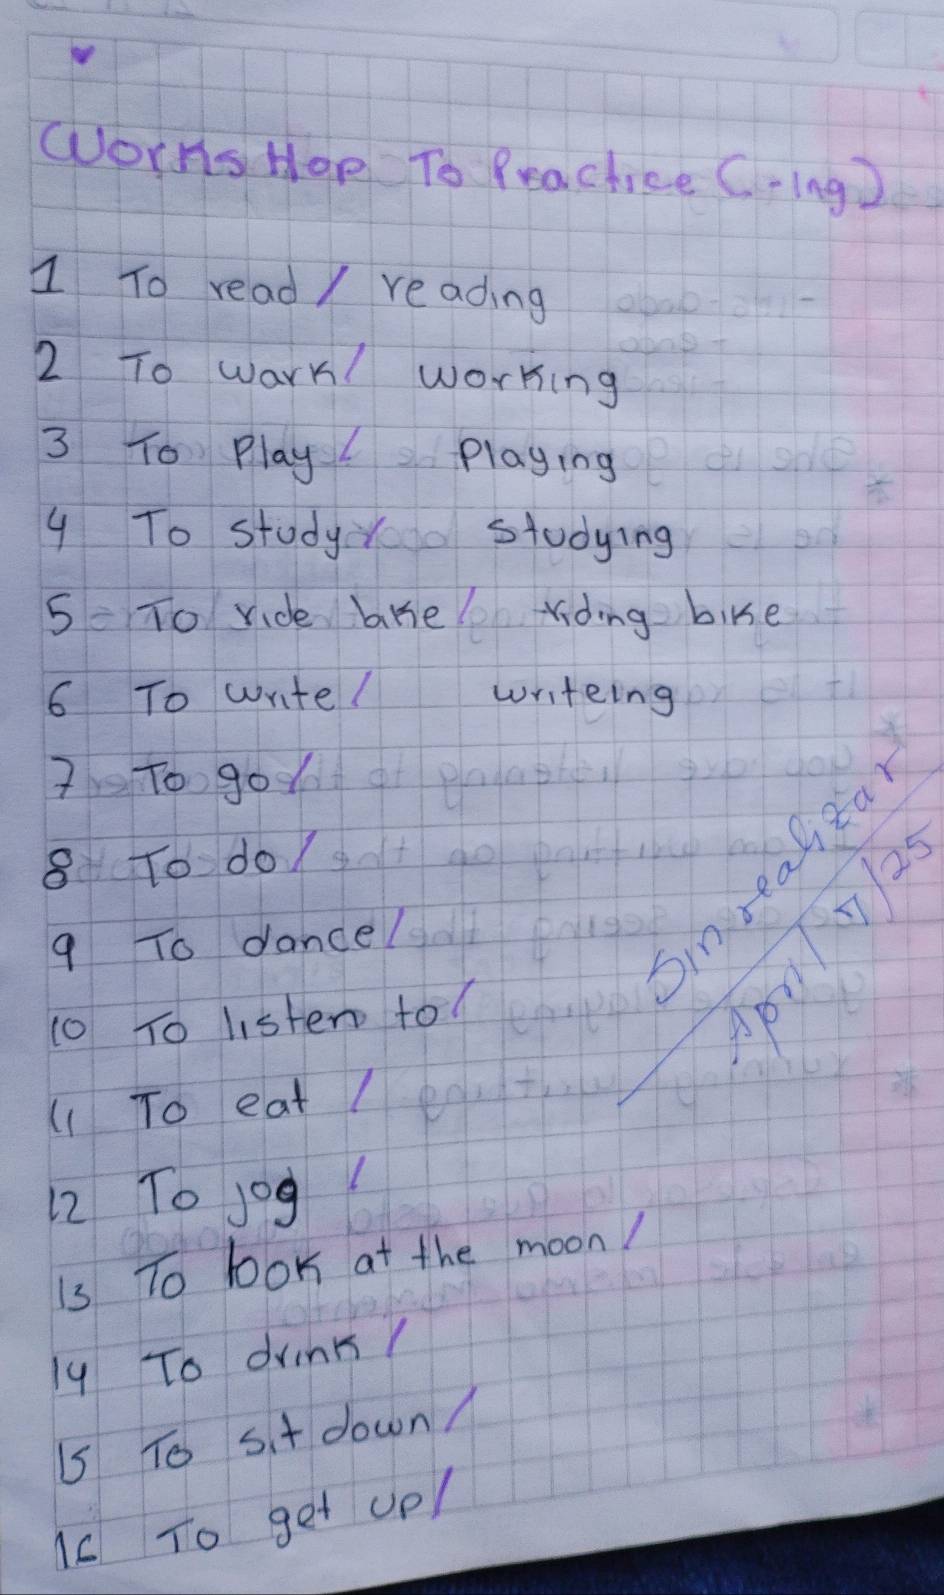 WorksHop To Practice (-ing)
1 To read / reading
2 To wark / working
3 To Play / Playing
4 To study / studying
5 To ride bike / riding bike
6 To write / writeing
7 To go /
8 To do /
9 To dance /
10 To listen to /
11 To eat /
12 To jog /
13 To look at the moon /
14 To drink /
15 To sit down /
16 To get up /
Sin realizar
April 7/25